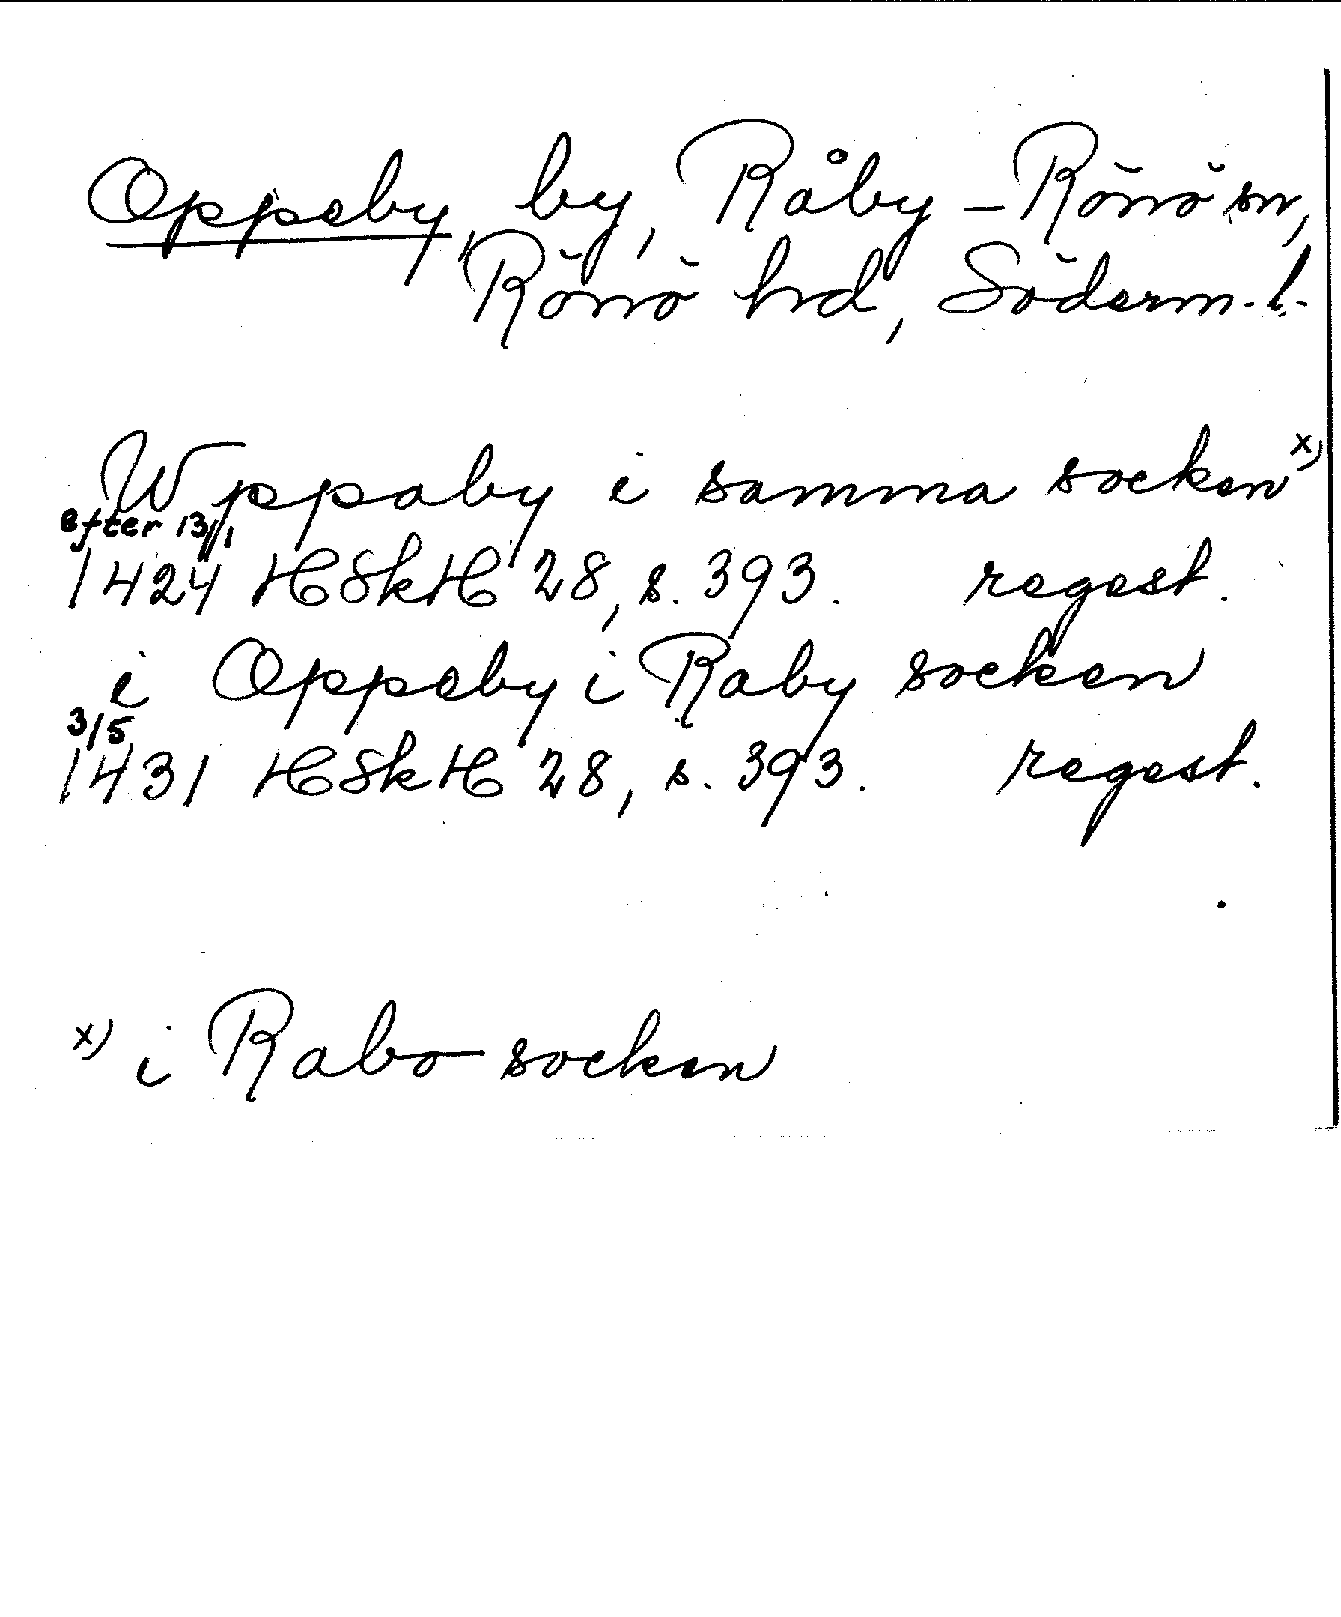 Oppeby, by, Råby-Rönö sn,
Rönö hd, Söderm.l.
Wppaby i samma socken x)
efter 13/1
1424 HSkH 28, s. 393. regest.
i Oppeby i Raby socken
3/5
1431 HSkH 28, s. 393. regest.
x) i Rabo socken